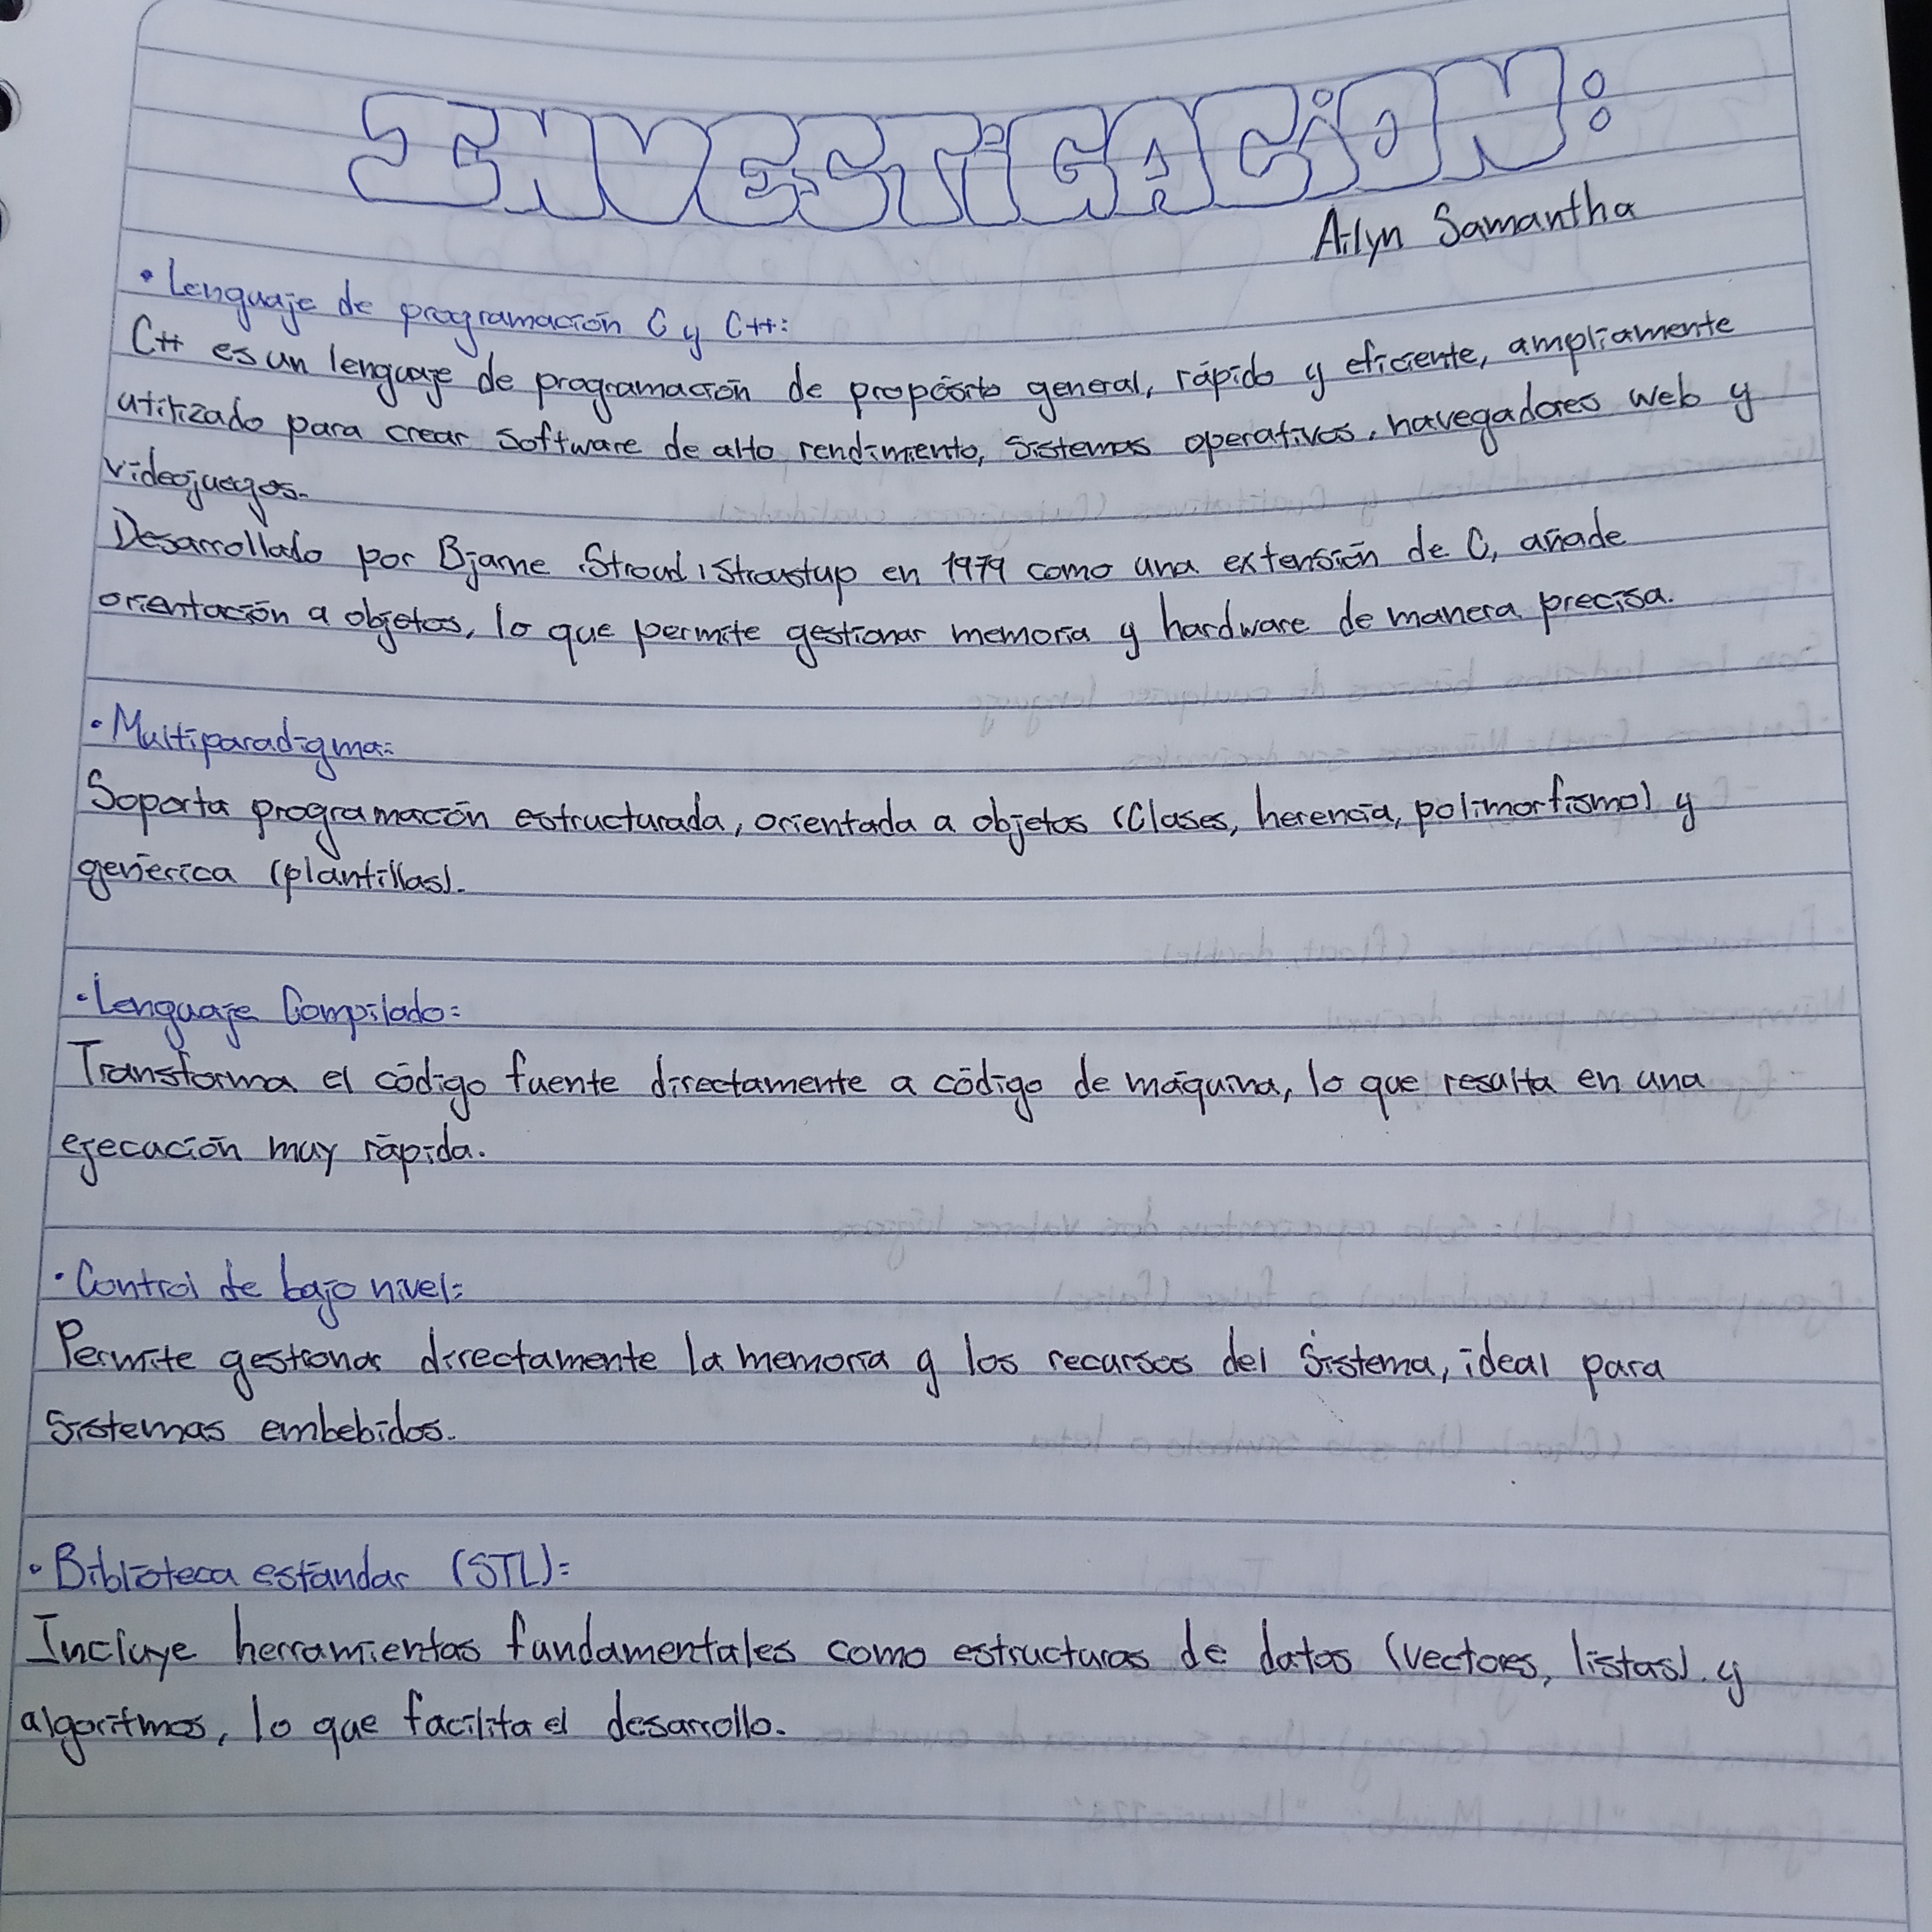 INVESTIGACIÓN:
Ailyn Samantha
• Lenguaje de programación C y C++:
C++ es un lenguaje de programación de propósito general, rápido y eficiente, ampliamente
utilizado para crear software de alto rendimiento, sistemas operativos, navegadores web y
videojuegos.
Desarrollado por Bjarne Stroud, Stroustup en 1979 como una extensión de C, añade
orientación a objetos, lo que permite gestionar memoria y hardware de manera precisa.
• Multiparadigma:
Soporta programación estructurada, orientada a objetos (Clases, herencia, polimorfismo) y
genérica (plantillas).
• Lenguaje Compilado:
Transforma el código fuente directamente a código de máquina, lo que resulta en una
ejecución muy rápida.
• Control de bajo nivel:
Permite gestionar directamente la memoria y los recursos del sistema, ideal para
sistemas embebidos.
• Biblioteca estándar (STL):
Incluye herramientas fundamentales como estructuras de datos (vectores, listas). y
algoritmos, lo que facilita el desarrollo.